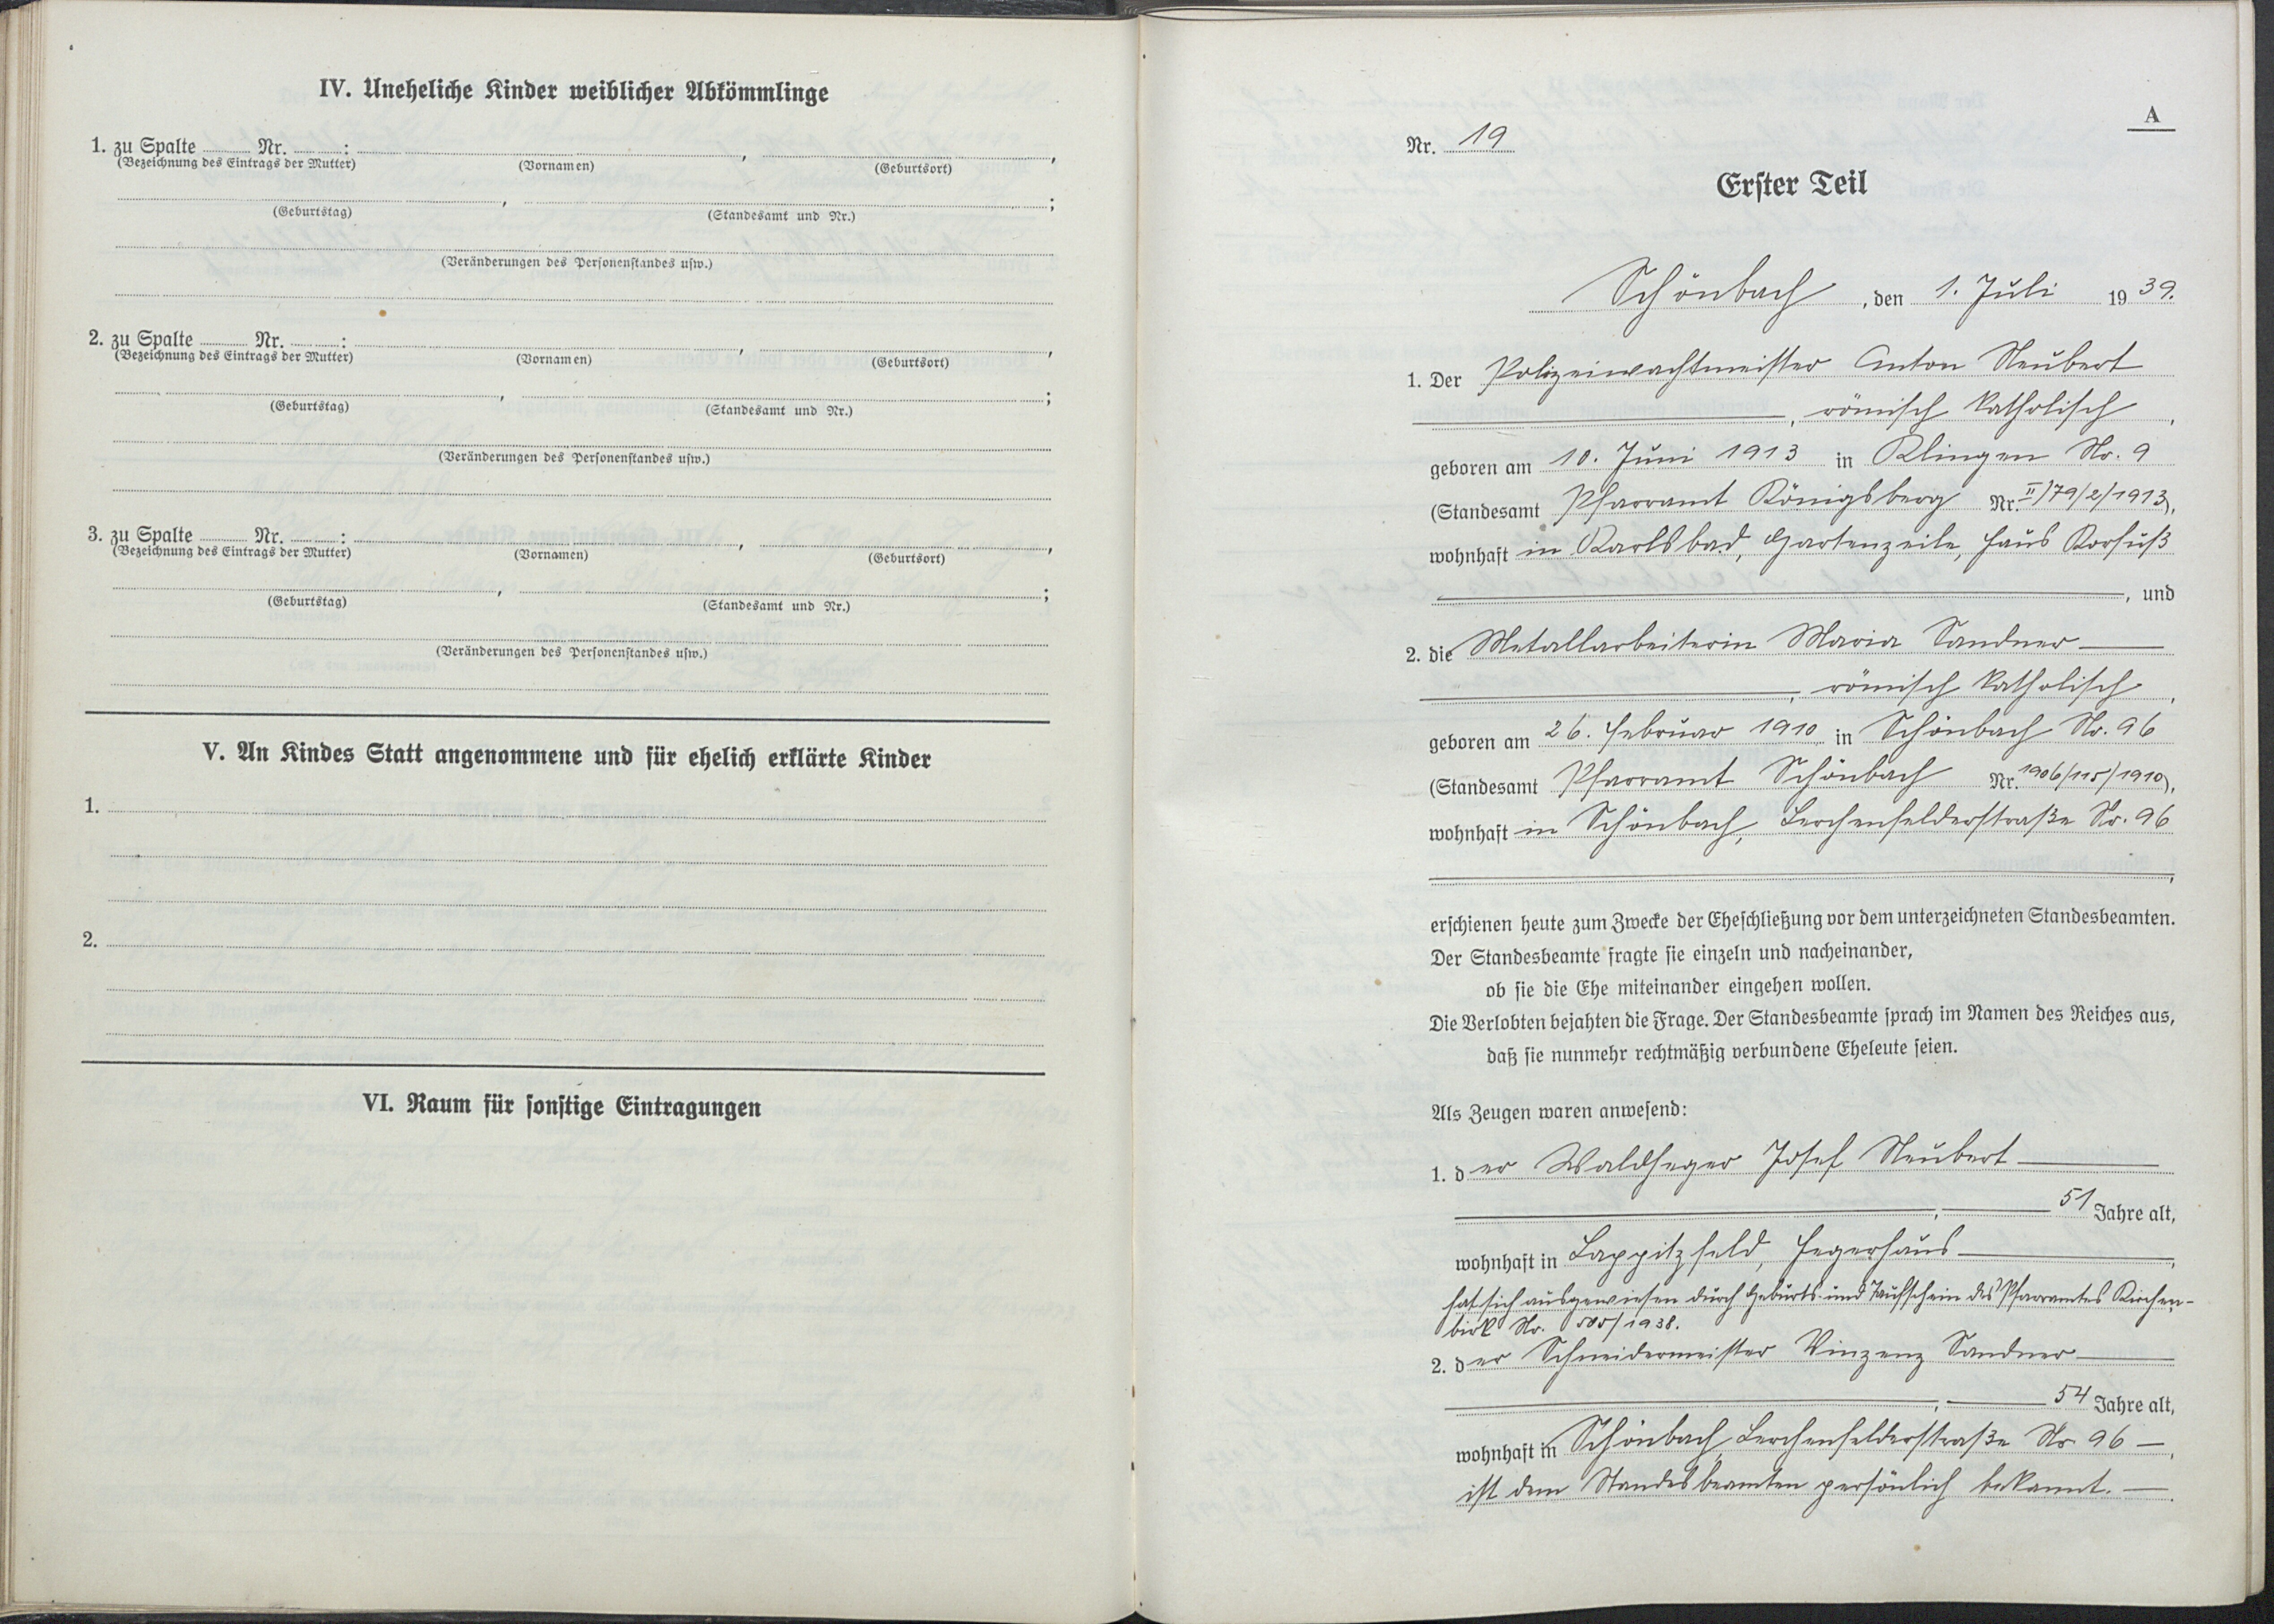 IV. Uneheliche Kinder weiblicher Abkömmlinge
1. zu Spalte ........ Nr. ........: ........, ........,
(Bezeichnung des Eintrags der Mutter) (Vornamen) (Geburtsort)
........, ........;
(Geburtstag) (Standesamt und Nr.)
(Veränderungen des Personenstandes usw.)
2. zu Spalte ........ Nr. ........: ........, ........,
(Bezeichnung des Eintrags der Mutter) (Vornamen) (Geburtsort)
........, ........;
(Geburtstag) (Standesamt und Nr.)
(Veränderungen des Personenstandes usw.)
3. zu Spalte ........ Nr. ........: ........, ........,
(Bezeichnung des Eintrags der Mutter) (Vornamen) (Geburtsort)
........, ........;
(Geburtstag) (Standesamt und Nr.)
(Veränderungen des Personenstandes usw.)
V. An Kindes Statt angenommene und für ehelich erklärte Kinder
1.
2.
VI. Raum für sonstige Eintragungen
A
Nr. 19
Erster Teil
Schönbach, den 1. Juli 1939.
1. Der Polizeiwachtmeister Anton Neubert
, römisch katholisch,
geboren am 10. Juni 1913 in Klingen Nr. 9
(Standesamt Pfarramt Königsberg Nr. II/79/2/1913),
wohnhaft in Karlsbad, Gartenzeile, Haus Korfuß
, und
2. die Metallarbeiterin Maria Sandner
, römisch katholisch,
geboren am 26. Februar 1910 in Schönbach Nr. 96
(Standesamt Pfarramt Schönbach Nr. 1906/115/1910),
wohnhaft in Schönbach, Lerchenfelderstraße Nr. 96
,
erschienen heute zum Zwecke der Eheschließung vor dem unterzeichneten Standesbeamten.
Der Standesbeamte fragte sie einzeln und nacheinander,
ob sie die Ehe miteinander eingehen wollen.
Die Verlobten bejahten die Frage. Der Standesbeamte sprach im Namen des Reiches aus,
daß sie nunmehr rechtmäßig verbundene Eheleute seien.
Als Zeugen waren anwesend:
1. der Waldheger Josef Neubert
, 51 Jahre alt,
wohnhaft in Lappitzfeld, Hegerhaus,
hat sich ausgewiesen durch Geburts- und Taufschein des Pfarramtes Kirchen-
birk Nr. /1938.
2. der Schneidermeister Vinzenz Sandner
, 54 Jahre alt,
wohnhaft in Schönbach, Lerchenfelderstraße Nr. 96,
ist dem Standesbeamten persönlich bekannt.